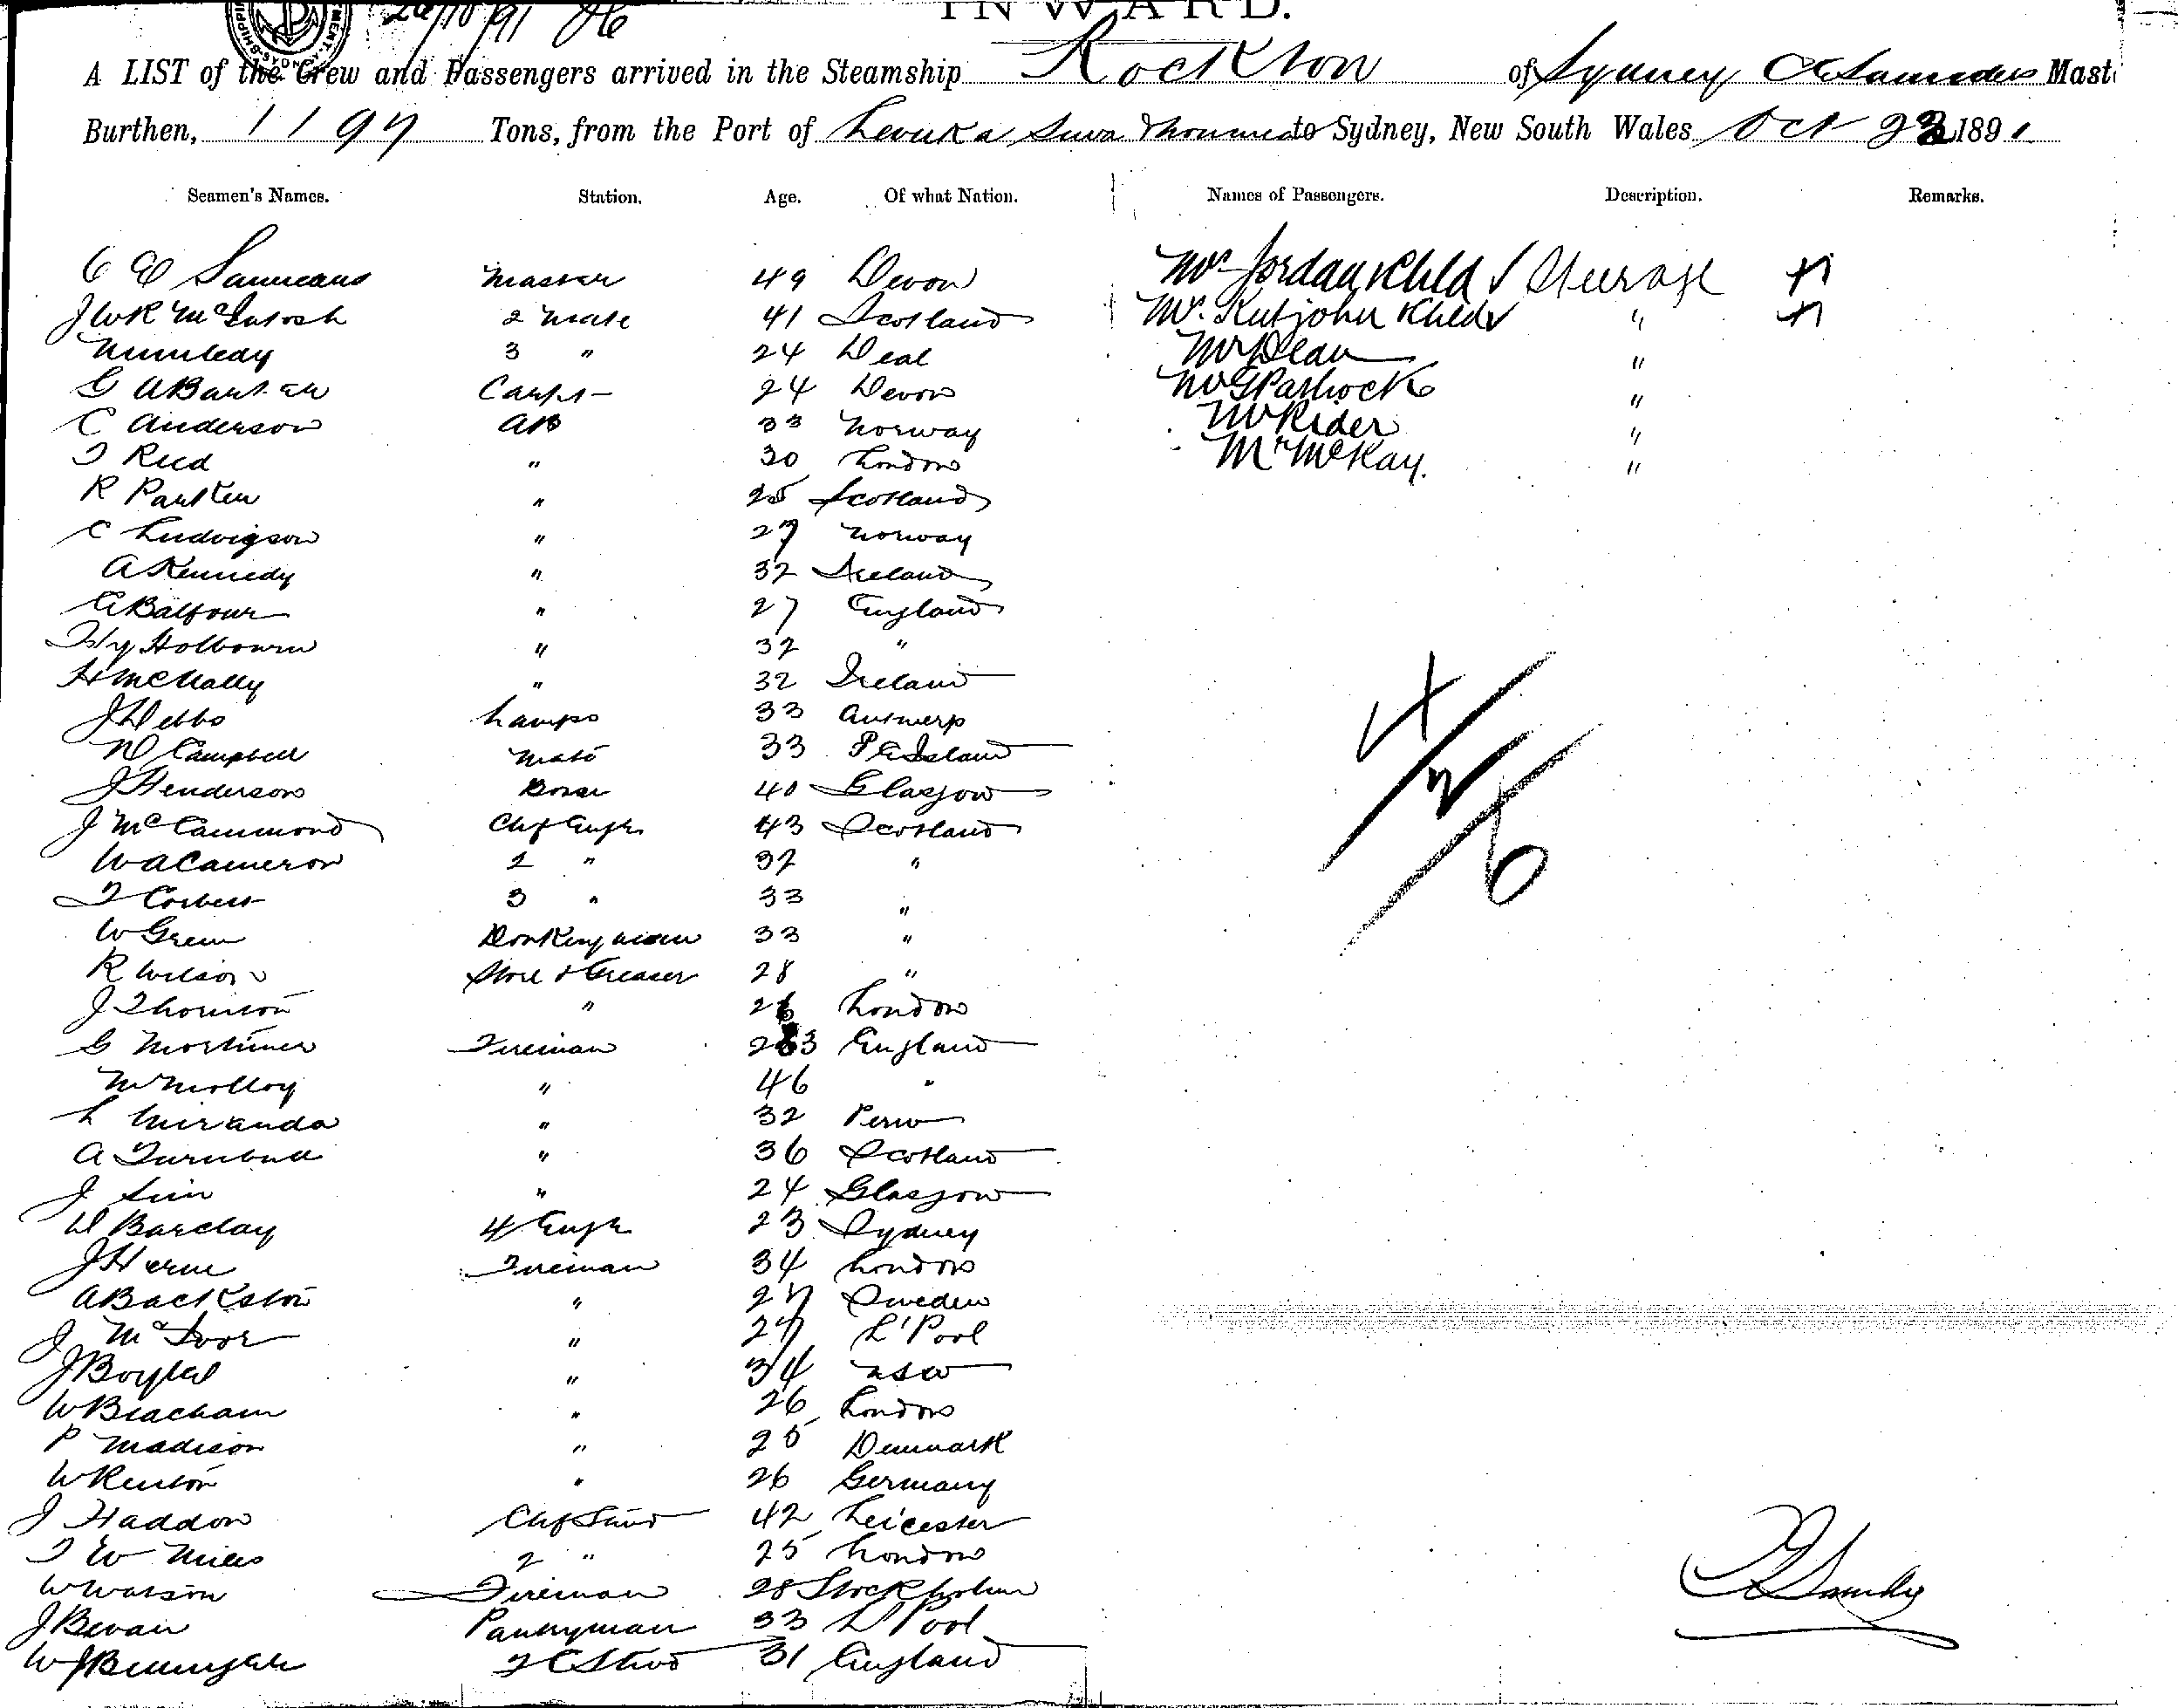 26/10/91
INWARD.
A LIST of the Crew and Passengers arrived in the Steamship Rockton of Sydney C E Saunders Mast
Burthen, 1197 Tons, from the Port of Levuka Suva to Sydney, New South Wales Oct 23 1891
Seamen's Names. Station. Age. Of what Nation. Names of Passengers. Description. Remarks.
C E Saunders Master 49 Devon Mrs Jordan & Child Steerage
J W R McIntosh 2 Mate 41 Scotland & Child "
3 " 24 Deal Mr Dean "
G A Carptr 24 Devon Mr "
C Anderson AB 33 Norway Mr Rider "
T Reed " 30 London Mr McKay. "
R " 25 Scotland
C Ludvigson " 27 Norway
A Kennedy " 32 Ireland
A Balfour " 27 England
Hy Holbourn " 32 "
H McNally " 32 Ireland
J Debbs Lamps 33 Antwerp
D Campbell Mate 33 P E Island
J Henderson Bosn 40 Glasgow
J McCammond Chf Engr 43 Scotland
W A Cameron 2 " 32 "
T Corbett 3 " 33 "
W Green Donkeyman 33 "
R Wilson Store & Greaser 28 "
J Thornton " 26 London
G Mortimer Fireman 33 England
M Molloy " 46 "
L Miranda " 32 Peru
A Turnbull " 36 Scotland
J Sim " 24 Glasgow
D Barclay 4 Engr 23 Sydney
J Herne Fireman 34 London
A Backston " 27 Sweden
J McIvor " 27 L'Pool
J " 34 NSW
W Beacham " 26 London
P Madison " 25 Denmark
W Renton " 26 Germany
J Haddon Chf Stwd 42 Leicester
T W Miles 2 " 25 London
W Watson Fireman 28 Stockholm
J Bevan Pantryman 33 L'Pool
W J F C Stwd 31 England